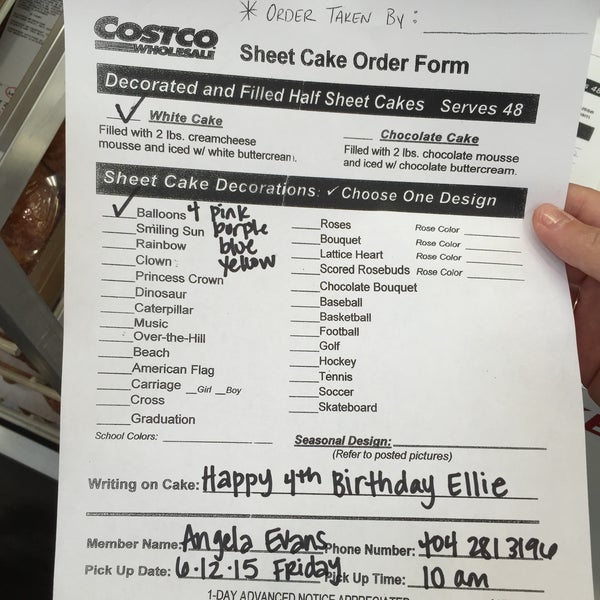 * ORDER TAKEN BY: ________
COSTCO
WHOLESALE
Sheet Cake Order Form
Decorated and Filled Half Sheet Cakes Serves 48
✓ White Cake
Filled with 2 lbs. creamcheese
mousse and iced w/ white buttercream.
____ Chocolate Cake
Filled with 2 lbs. chocolate mousse
and iced w/ chocolate buttercream.
Sheet Cake Decorations: ✓ Choose One Design
✓ Balloons 4 pink
____Smiling Sun purple
____Rainbow blue
____Clown yellow
____Princess Crown
____Dinosaur
____Caterpillar
____Music
____Over-the-Hill
____Beach
____American Flag
____Carriage __Girl __Boy
____Cross
____Graduation
____Roses Rose Color ________
____Bouquet Rose Color ________
____Lattice Heart Rose Color ________
____Scored Rosebuds Rose Color ________
____Chocolate Bouquet
____Baseball
____Basketball
____Football
____Golf
____Hockey
____Tennis
____Soccer
____Skateboard
School Colors: ________ Seasonal Design: ________
(Refer to posted pictures)
Writing on Cake: Happy 4th Birthday Ellie
Member Name: Angela Evans Phone Number: 404 281 3196
Pick Up Date: 6·12·15 Friday Pick Up Time: 10 am
1-DAY ADVANCED NOTICE APPRECIATED